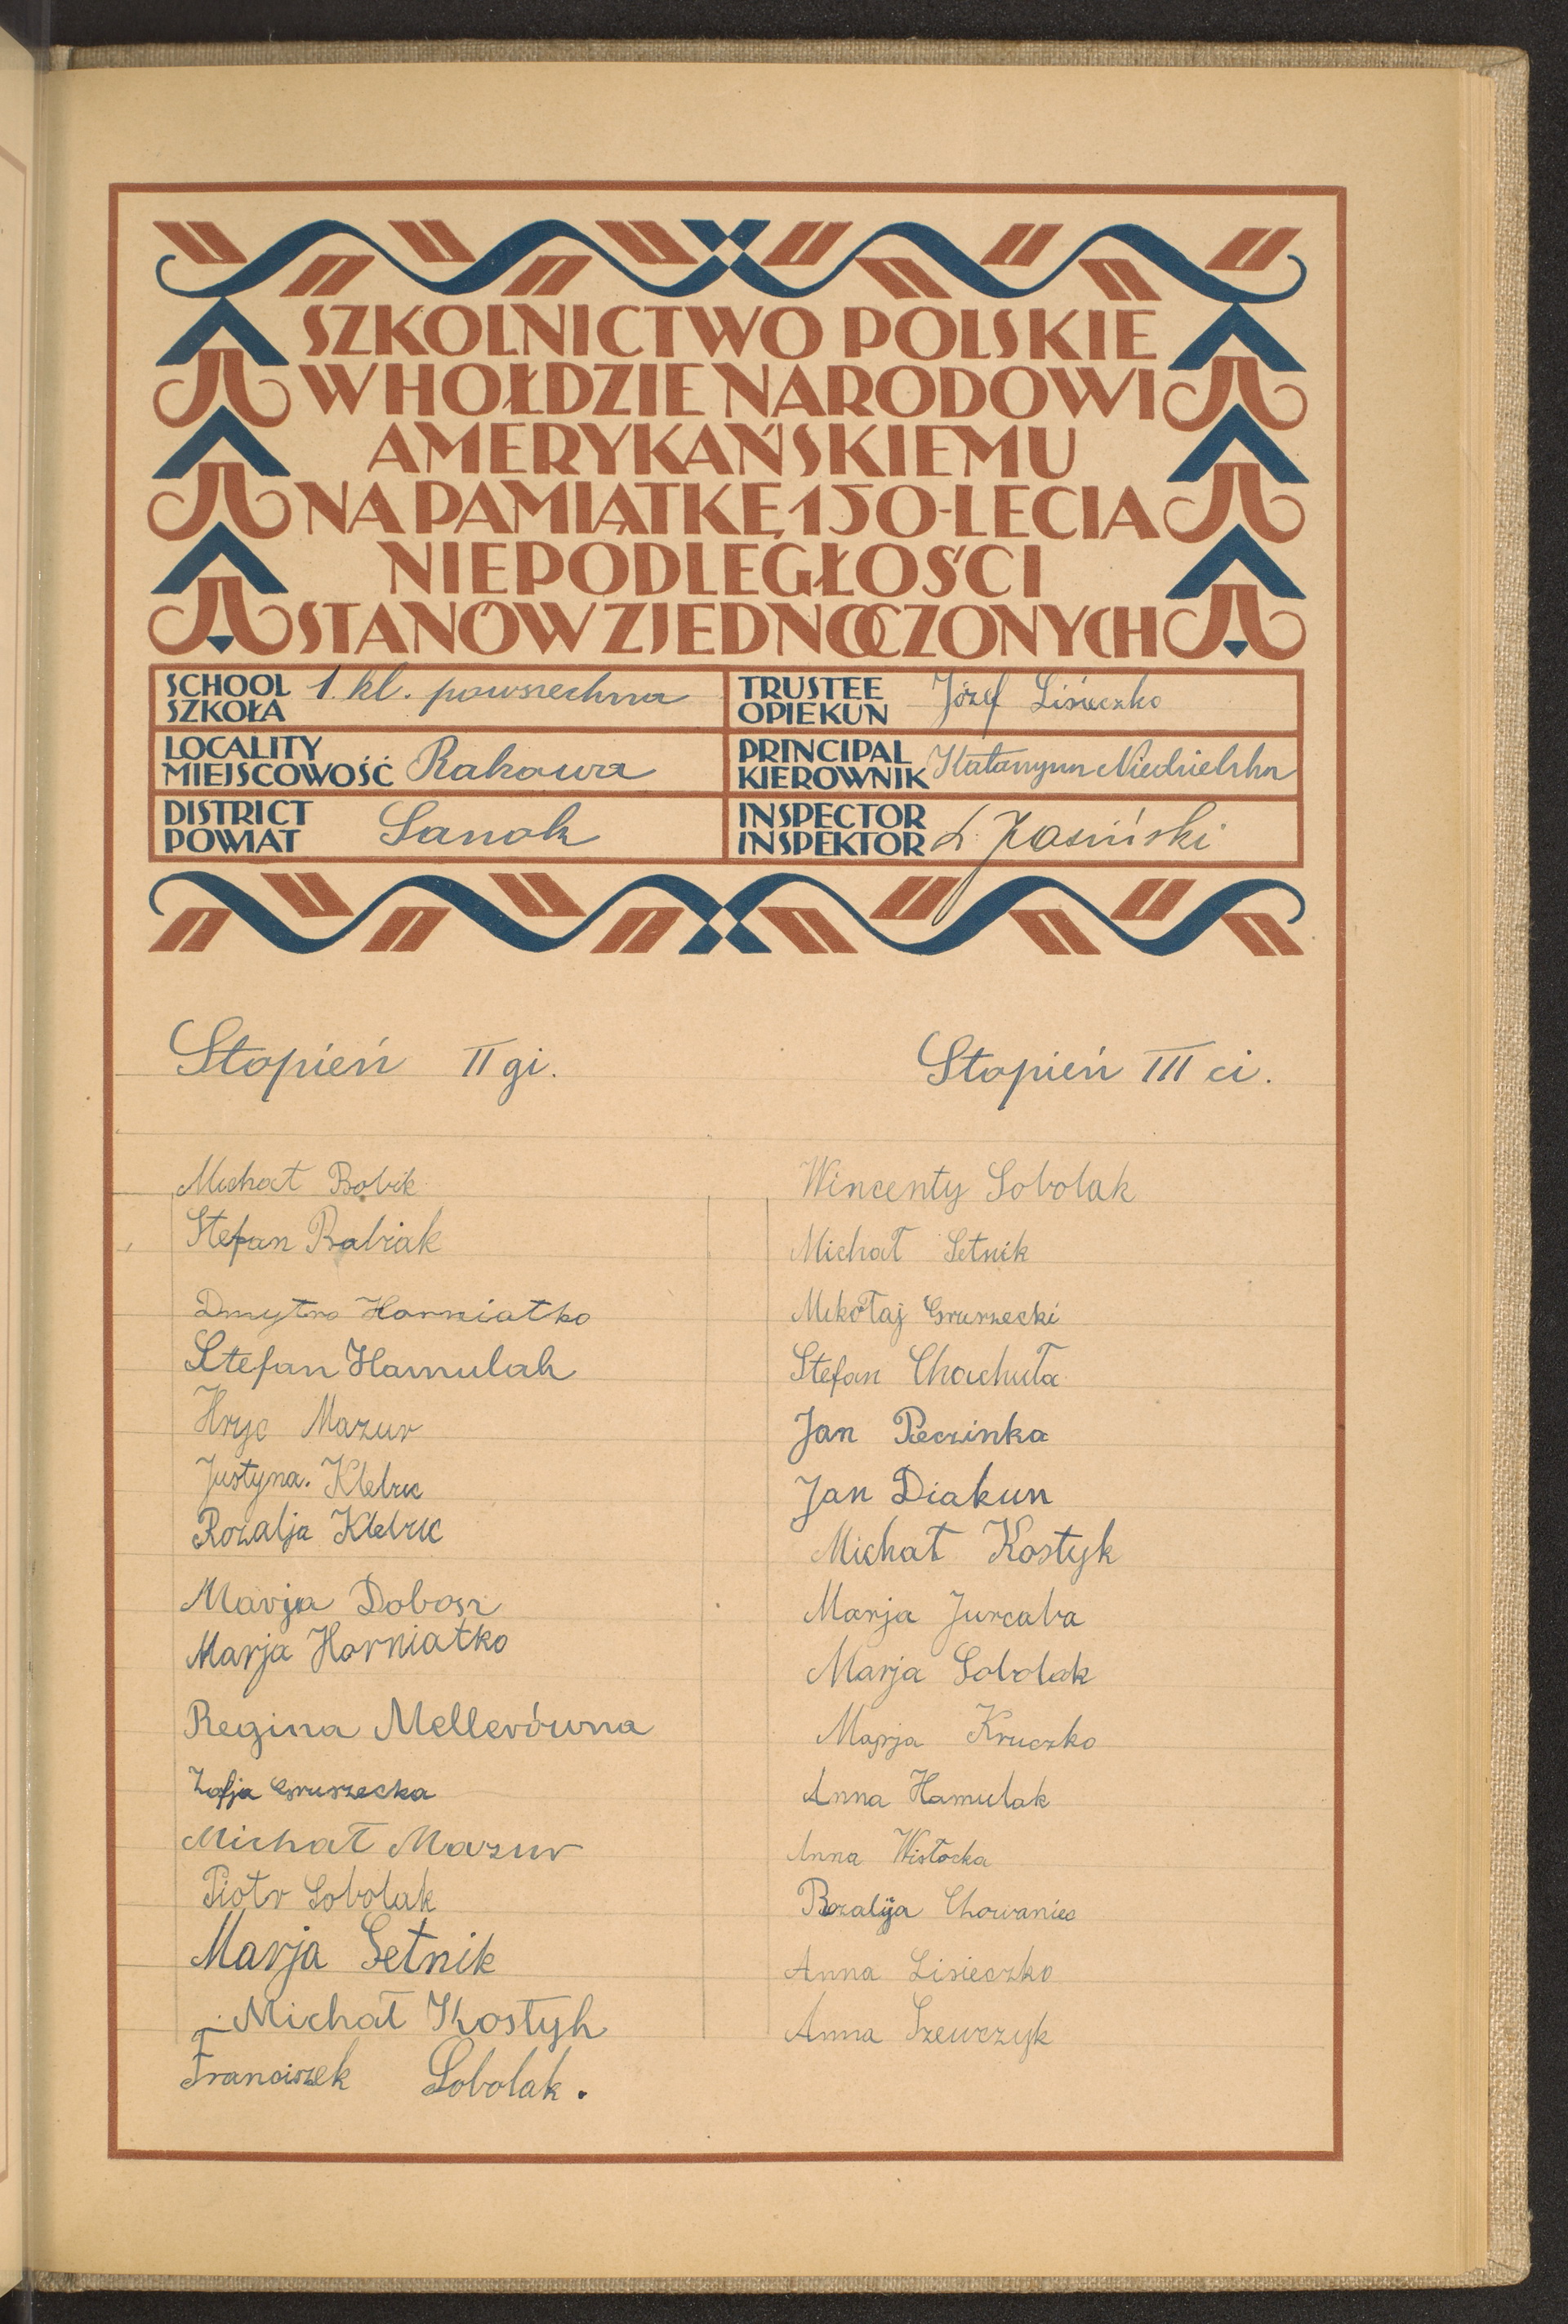 SZKOLNICTWO POLSKIE
W HOŁDZIE NARODOWI
AMERYKAŃSKIEMU
NA PAMIĄTKĘ 150-LECIA
NIEPODLEGŁOŚCI
STANÓW ZJEDNOCZONYCH
SCHOOL
SZKOŁA
1. kl. powszechna
TRUSTEE
OPIEKUN
Józef Lisieczko
LOCALITY
MIEJSCOWOŚĆ
Rakowa
PRINCIPAL
KIEROWNIK
Katarzyna Niedzielska
DISTRICT
POWIAT
Sanok
INSPECTOR
INSPEKTOR
Stopień II gi.
Michał Bobik
Stefan Babiak
Dmytro Horniatko
Stefan Hamulak
Hryc Mazur
Justyna.
Rozalja
Marja Dobosz
Marja Horniatko
Regina Mellerówna
Zofja Gruszecka
Michał Mazur
Piotr Sobolak
Marja Setnik
Michał Kostyk
Franciszek Sobolak.
Stopień III ci.
Wincenty Sobolak
Michał Setnik
Mikołaj Gruszecki
Stefan Chachuła
Jan Pieczinka
Jan Diakun
Michał Kostyk
Marja Jurcaba
Marja Sobolak
Marja Kruczko
Anna Hamulak
Anna Wisłocka
Rozalija Chowaniec
Anna Lisieczko
Anna Szewczyk